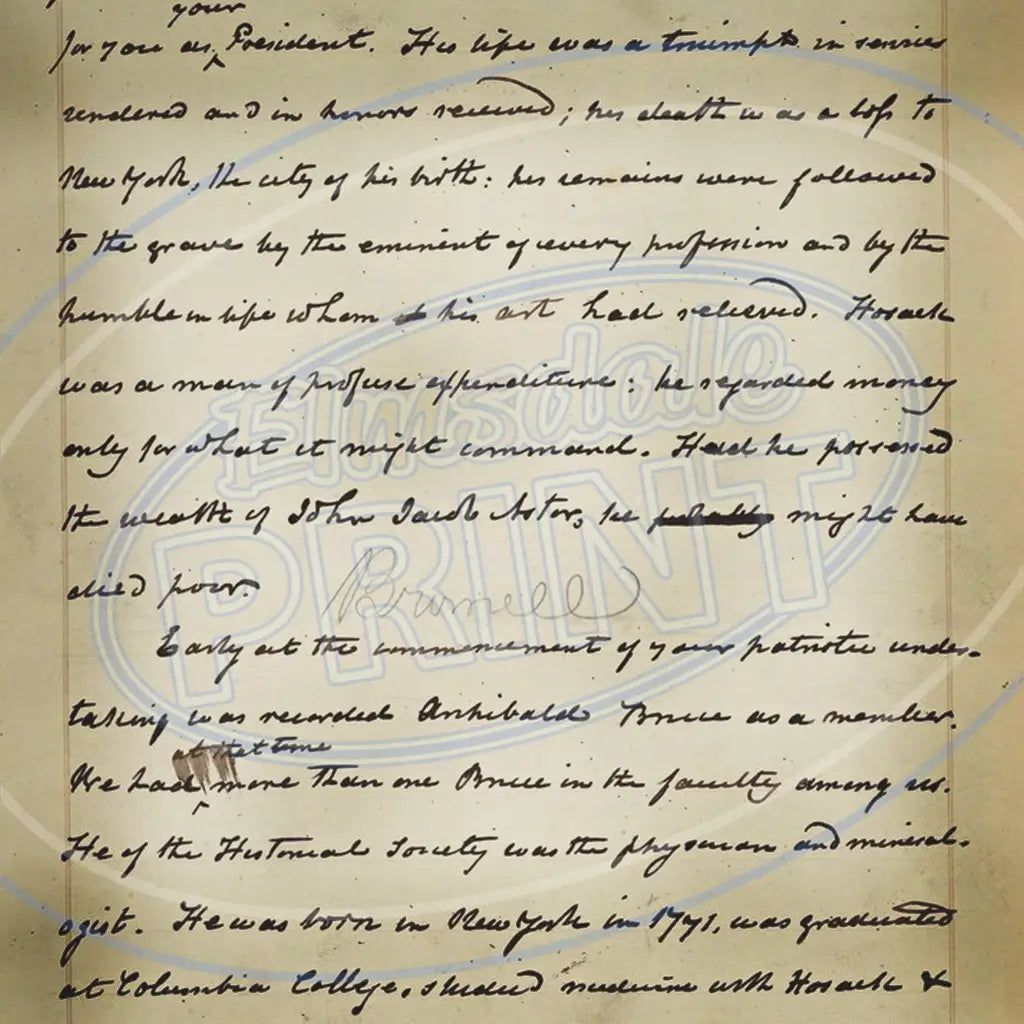 your
for you as ‸ President. His life was a triumph in services
rendered and in honors received; his death was a loss to
New York, the city of his birth: his remains were followed
to the grave by the eminent of every profession and by the
humble in life whom his art had relieved. Hosack
was a man of profuse expenditure: he regarded money
only for what it might command. Had he possessed
the wealth of John Jacob Astor, he probably might have
died poor.
Elmsdale
PRINT
Early at the commencement of your patriotic under-
taking was recorded Archibald Bruce as a member.
at that time
We had ‸ more than one Bruce in the faculty among us.
He of the Historical Society was the physician and mineral-
ogist. He was born in New York in 1771, was graduated
at Columbia College, studied medicine with Hosack &